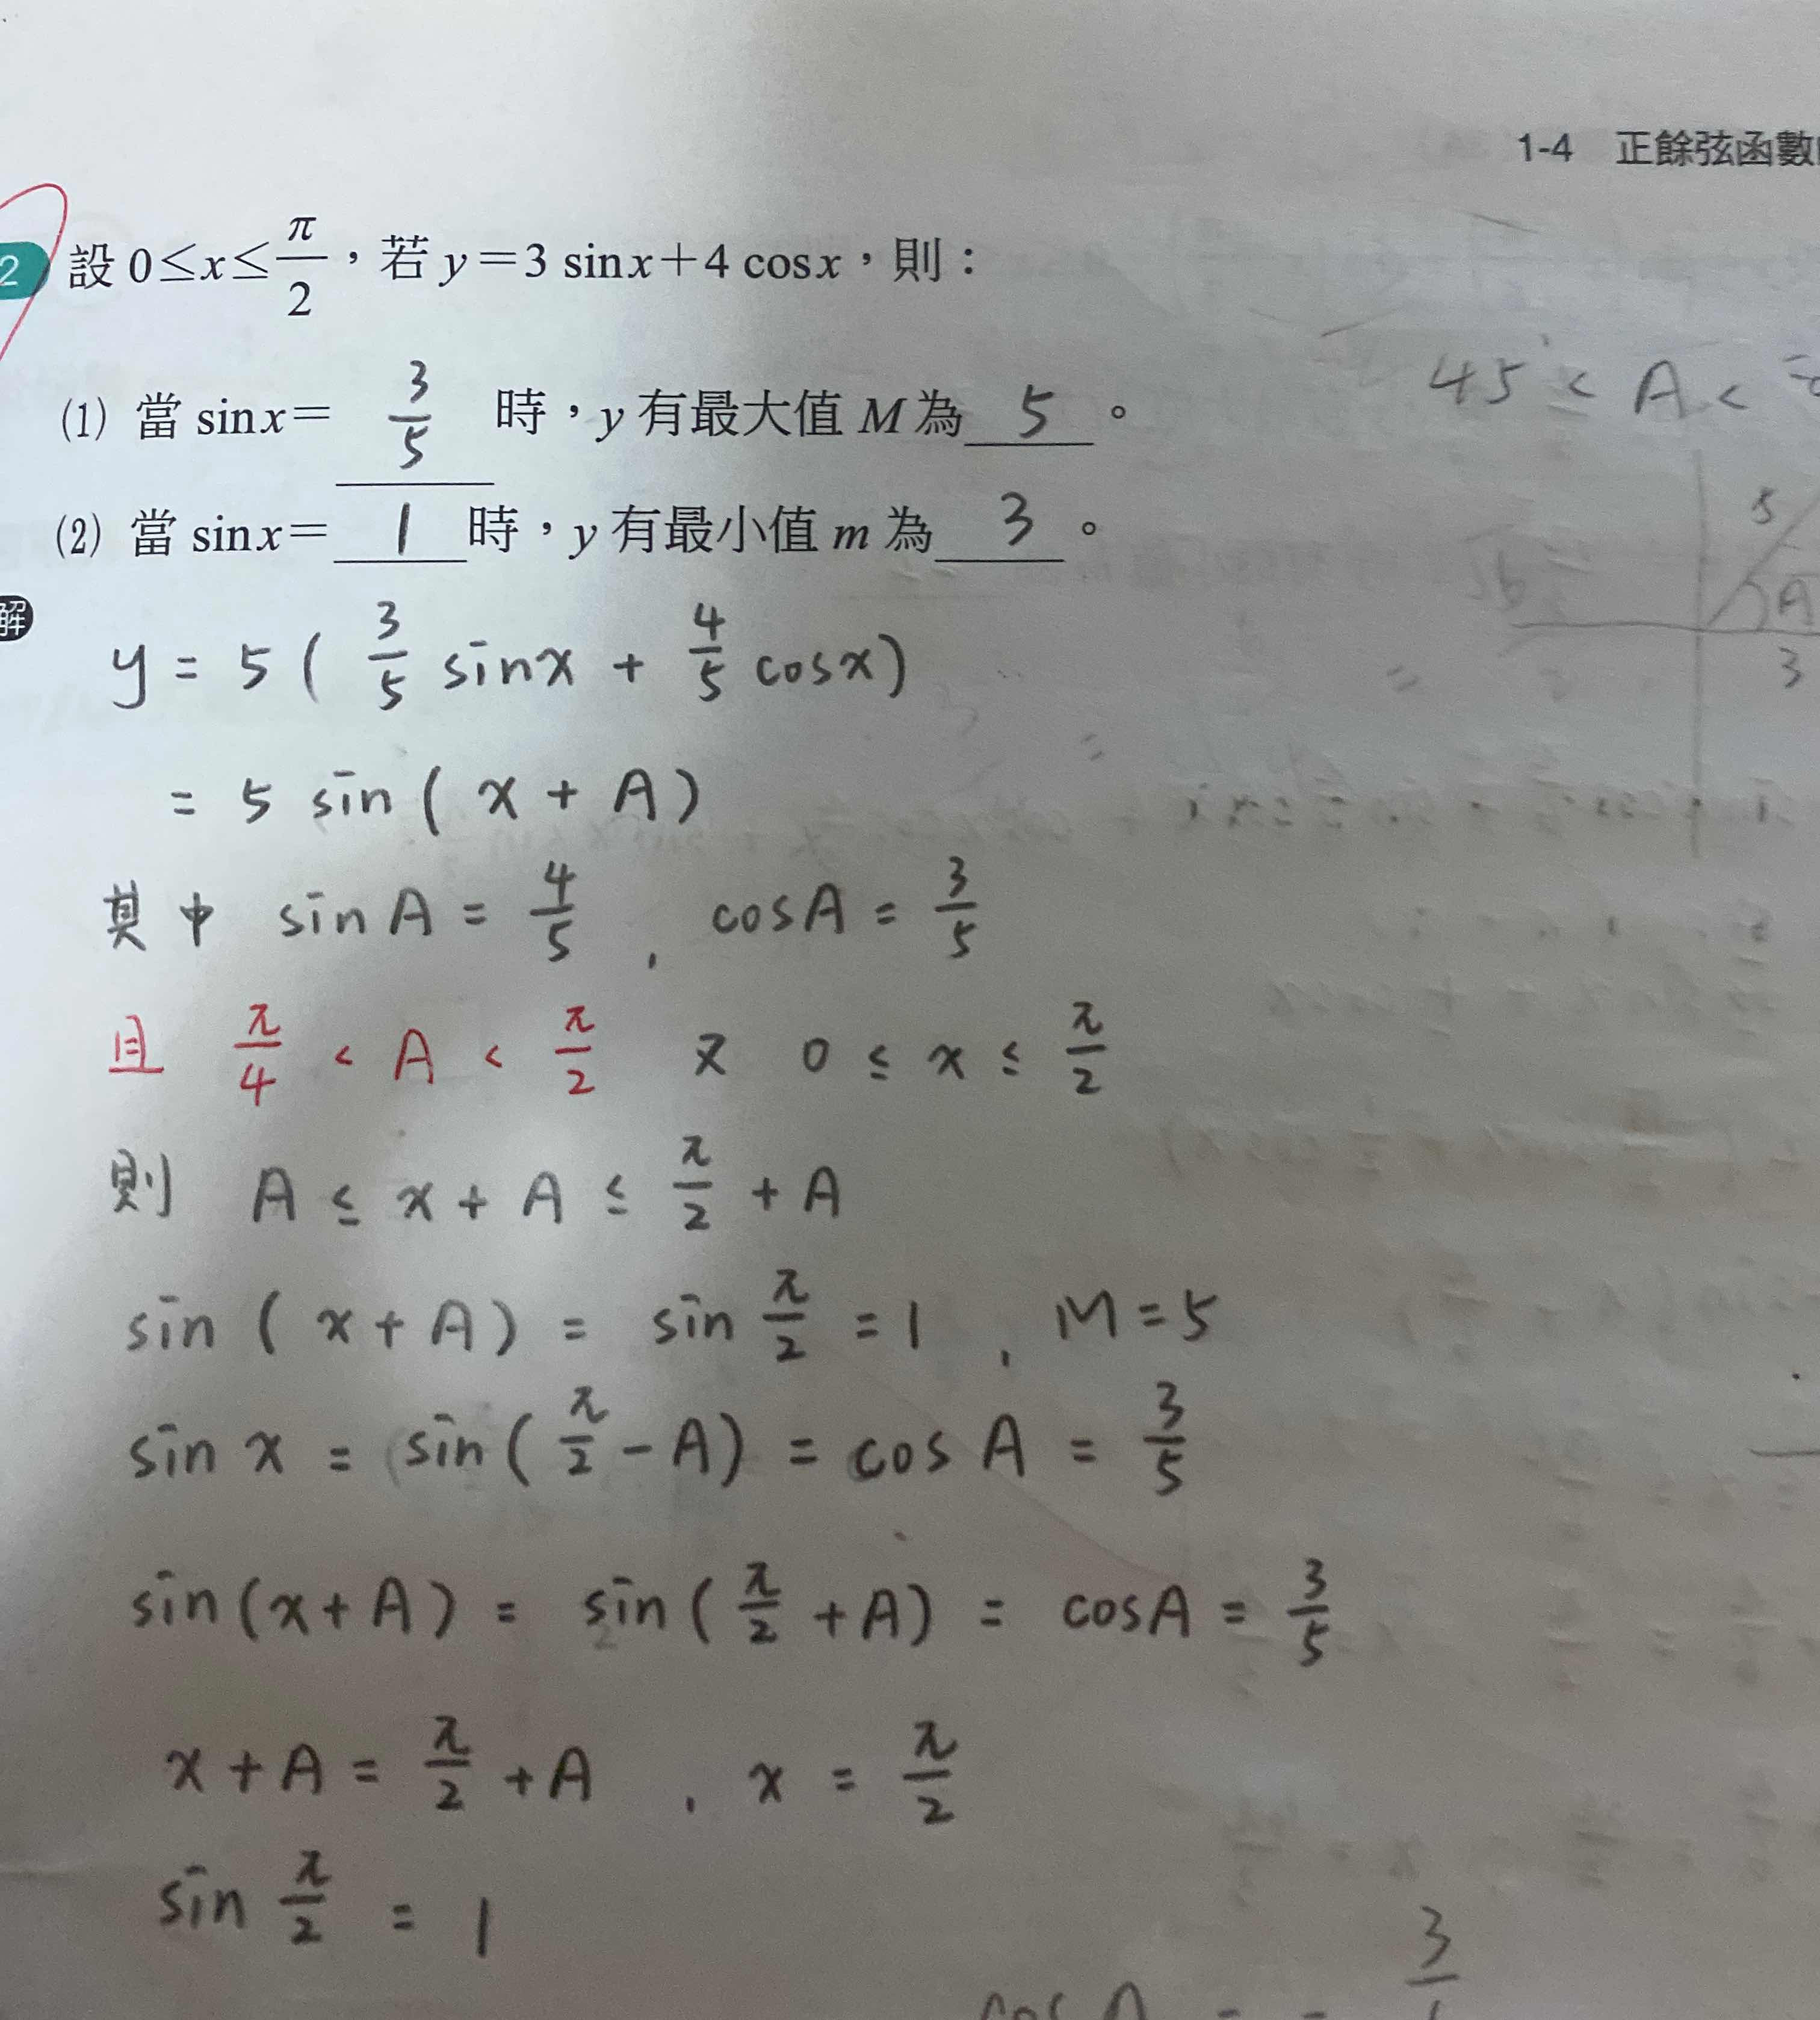 1-4 正餘弦函數
2 設 0≤x≤π/2，若 y=3 sinx+4 cosx，則：
(1) 當 sinx= 3/5 時，y 有最大值 M 為 5 。
45° < A <
(2) 當 sinx= 1 時，y 有最小值 m 為 3 。
5
A
3
解
y = 5 ( 3/5 sinx + 4/5 cosx )
= 5 sin ( x + A )
其中 sinA = 4/5 , cosA = 3/5
且 π/4 < A < π/2 又 0 ≤ x ≤ π/2
則 A ≤ x + A ≤ π/2 + A
sin ( x + A ) = sin π/2 = 1 , M = 5
sin x = sin ( π/2 - A ) = cos A = 3/5
sin ( x + A ) = sin ( π/2 + A ) = cosA = 3/5
x + A = π/2 + A , x = π/2
sin π/2 = 1
3
cos A =